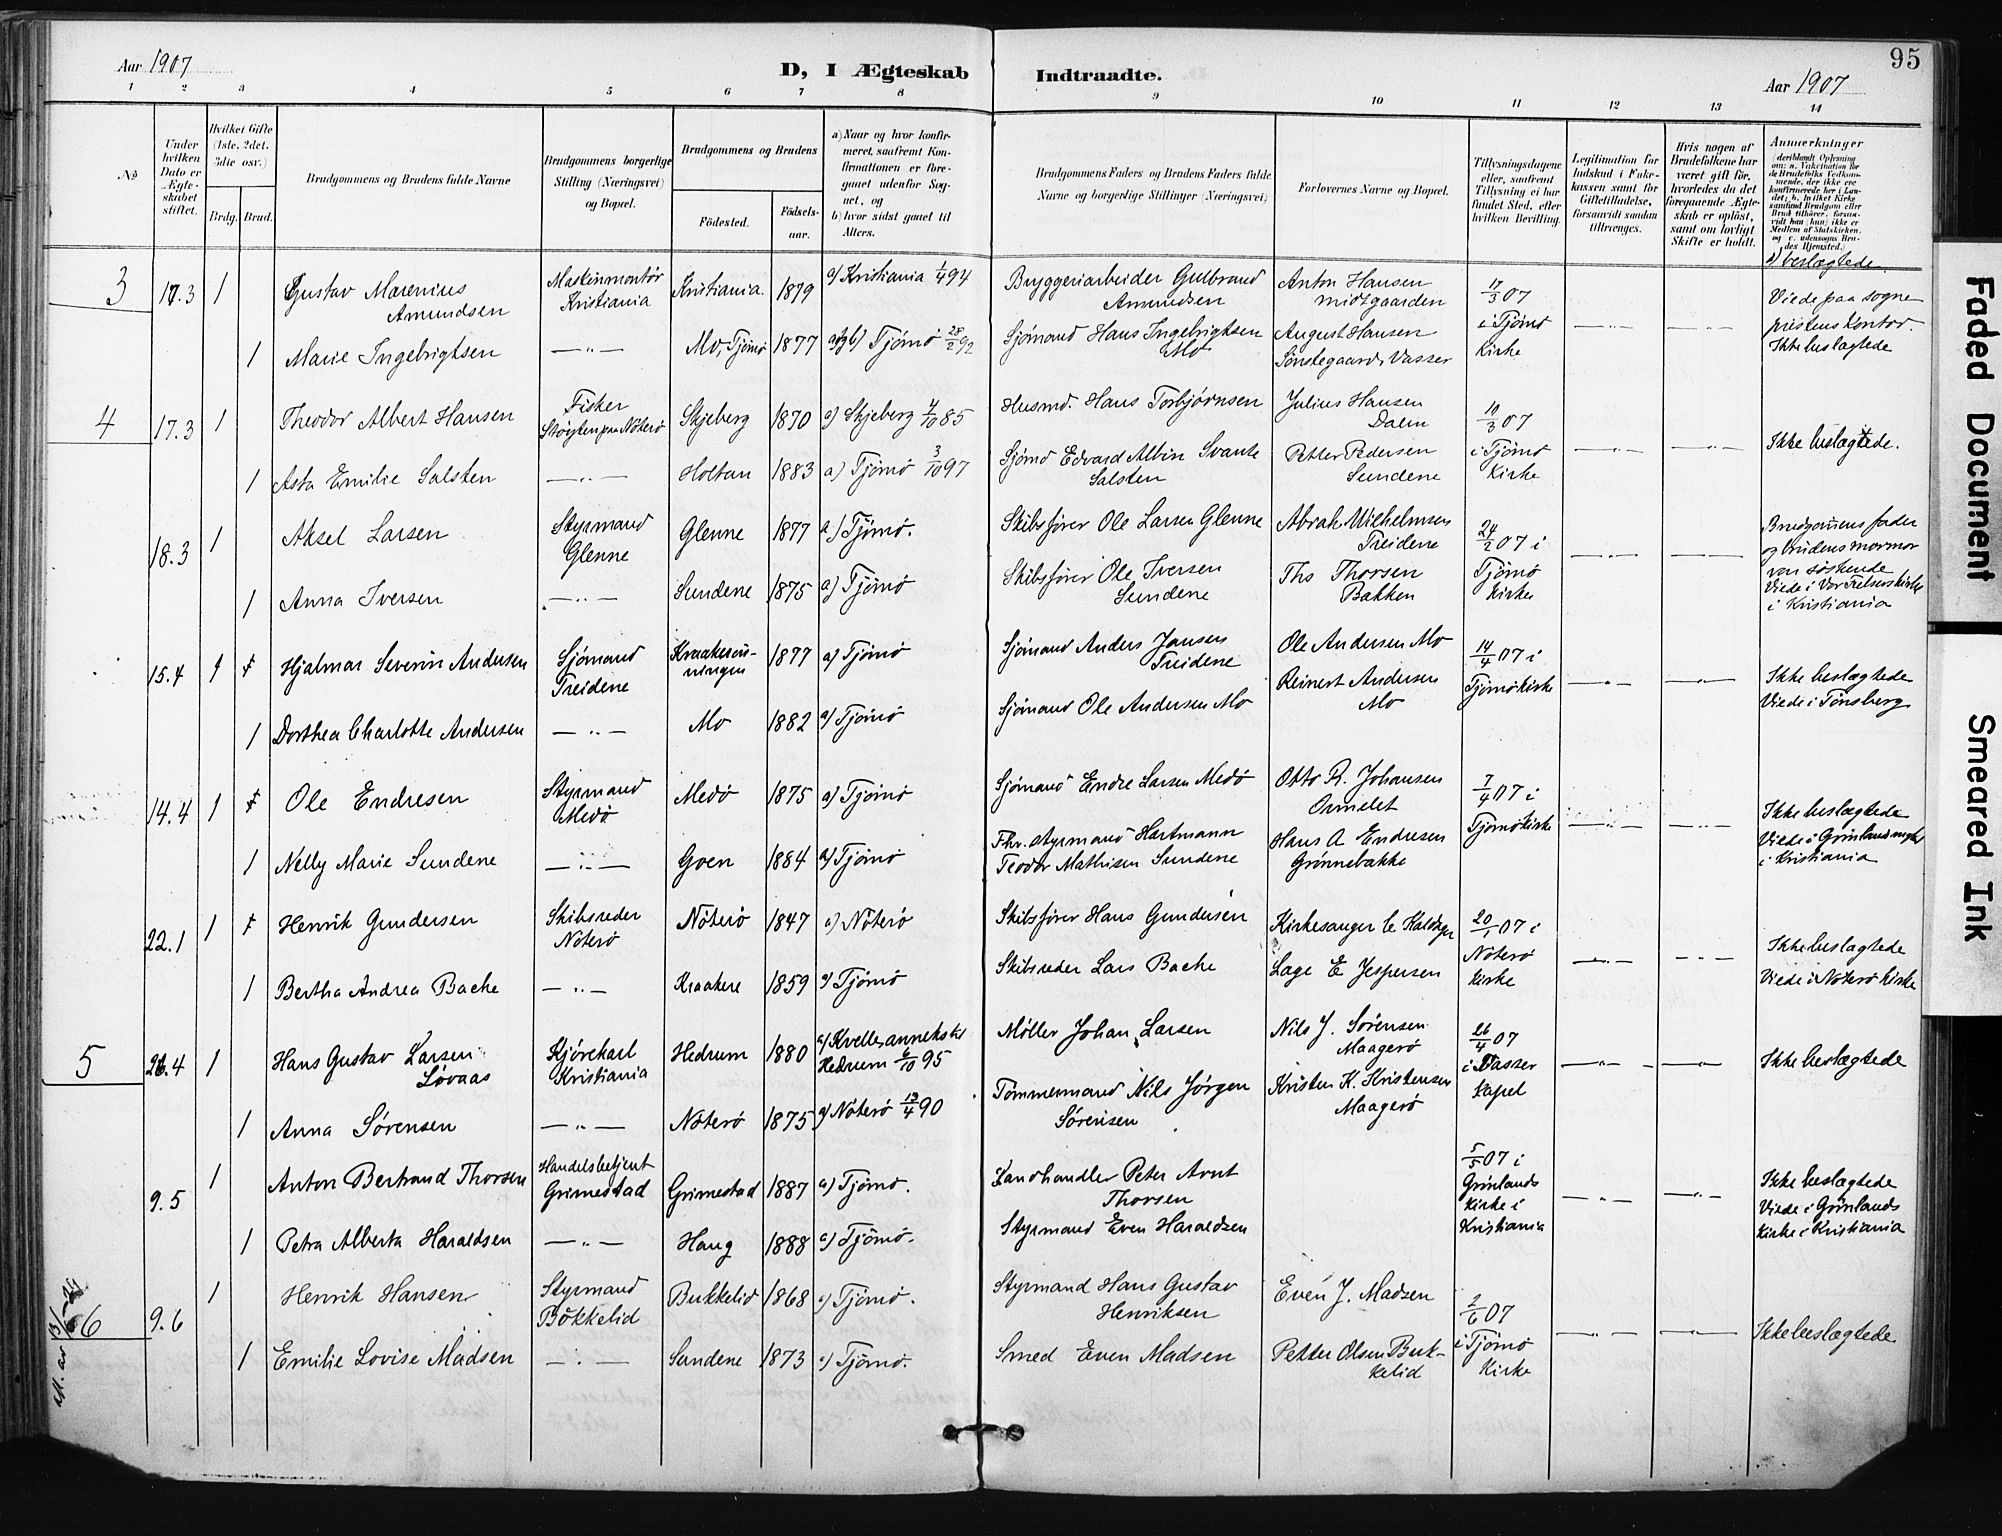 95
Aar 1907
D, I Ægteskab
Indtraadte.
Aar 1907
1 2 3 4 5 6 7 8 9 10 11 12 13 14
No
Under hvilken Dato er Ægteskabet stiftet.
Hvilket Gifte (1ste, 2det, 3die osv.)
Brdg. Brud.
Brudgommens og Brudens fulde Navne
Brudgommens borgerlige Stilling (Næringsvei) og Bopæl.
Brudgommens og Brudens
Fødested.
Fødselsaar.
a) Naar og hvor konfirmeret, saafremt Konfirmationen er foregaaet udenfor Sognet, og
b) hvor sidst gaaet til Alters.
Brudgommens Faders og Brudens Faders fulde Navne og borgerlige Stillinger (Næringsvei)
Forlovernes Navne og Bopæl.
Tillysningsdagene eller, saafremt Tillysning ei har fundet Sted, efter hvilken Bevilling.
Legitimation for Indskud i Enkekassen samt for Giftetilladelse, forsaavidt saadan tiltrænges.
Hvis nogen af Brudefolkene har været gift før, hvorledes da det foregaaende Ægteskab er opløst, samt om lovligt Skifte er holdt.
Anmærkninger
(deriblandt Oplysning om: a. Vakcination for de Brudefolks Vedkommende, der ikke ere konfirmerede her i Landet; b. hvilket Kirkesamfund Brudgom eller Brud tilhører, forsaavidt han (hun) ikke er Medlem af Statskirken, og c. udensogns Brudes Hjemsted.)
d) beslægtede
3 17.3 1 Gustav Marenius Amundsen Maskinmontør Kristiania Kristiania. 1879 a) Kristiania 1/4 94 Bryggeriarbeider Gulbrand Amundsen Anton Hansen Midtgaarden 17/3 07 i Tjømø Kirke Viede paa sogneprestens Kontor. Ikke beslægtede
1 Marie Ingebrigtsen —"— Mo, Tjømø 1877 a og b) Tjømø 28/2 92 Sjømand Hans Ingebrigtsen Mo August Hansen Søndegaard, Vasser
4 17.3 1 Theodor Albert Hansen Fisker Støiten paa Nøterø Skjeberg 1870 a) Skjeberg 4/10 85 Husmd. Hans Torbjørnsen Julius Hansen Dalen 10/3 07 i Tjømø Kirke Ikke beslægtede.
1 Asta Emilie Salsten —"— Holtan 1883 a) Tjømø 3/10 97 Sjømd Edvard Albin Svante Salsten Petter Pedersen Sundene
18.3 1 Aksel Larsen Styrmand Glenne Glenne 1877 a) Tjømø. Skibsfører Ole Larsen Glenne Abrah Wilhelmsen Treidene 24/2 07 i Tjømø Kirke Brudgomens fader og brudens mormor var søskende Viede i Vor Frelsers kirke i Kristiania
1 Anna Iversen —"— Sundene 1875 a) Tjømø Skibsfører Ole Iversen Sundene Ths Thorsen Bakken
15.4 1 Hjalmar Severin Andersen Sjømand Treidene 1877 a) Tjømø Sjømand Anders Jansen Treidene Ole Andersen Mo 14/4 07 i Tjømø kirke Ikke beslægtede Viede i Tønsberg
1 Dorthea Charlotte Andersen —"— Mo 1882 a) Tjømø Sjømand Ole Andersen Mo Reinert Andersen Mo
14.4 1 Ole Endresen Styrmand Medø Medø 1875 a) Tjømø Sjømand Endre Larsen Medø Otto R. Johansen Ormelet 7/4 07 i Tjømø kirke Ikke beslægtede Viede i Grønlands i Kristiania
1 Nelly Marie Sundene —"— Goen 1884 a) Tjømø Fhv. styrmand Hartmann Teodor Mathisen Sundene Hans A Endresen Grønnebakke
22.1 1 Henrik Gundersen Skibsreder Nøterø Nøterø 1847 a) Nøterø Skibsfører Hans Gundersen Kirkesanger C. 20/1 07 i Nøterø Kirke Ikke beslægtede Viede i Nøterø kirke
1 Bertha Andrea Bache —"— Kraakere 1859 a) Tjømø Skibsreder Lars Bache Lage E Jespersen
5 26.4 1 Hans Gustav Larsen Løvaas Kjørekarl Kristiania Hedrum 1880 a) Kvelle, anneks til Hedrum 6/10 95 Møller Johan Larsen Nils J. Sørensen Maagerø 26/4 07 i Vasser kapel Ikke beslægtede
1 Anna Sørensen —"— Nøterø 1875 a) Nøterø 13/4 90 Tømmermand Nils Jørgen Sørensen Kristen K. Kristensen Maagerø
9.5 1 Anton Bertrand Thorsen Handelsbetjent Grimestad Grimestad 1887 a) Tjømø. Landhandler Peter Arnt Thorsen 5/5 07 i Grønlands kirke i Kristiania Ikke beslægtede Viede i Grønlands kirke i Kristiania
1 Petra Alberta Haraldsen —"— Haug 1888 a) Tjømø. Styrmand Even Haraldsen
6 9.6 1 Henrik Hansen Styrmand Bukkelid Bukkelid 1868 a) Tjømø. Styrmand Hans Gustav Henriksen Even J. Madsen 2/6 07 i Tjømø Kirke Ikke beslægtede
1 Emilie Lovise Madsen —"— Sundene 1873 a) Tjømø. Smed Even Madsen Petter Olsen Bukkelid
Faded Document
Smeared Ink